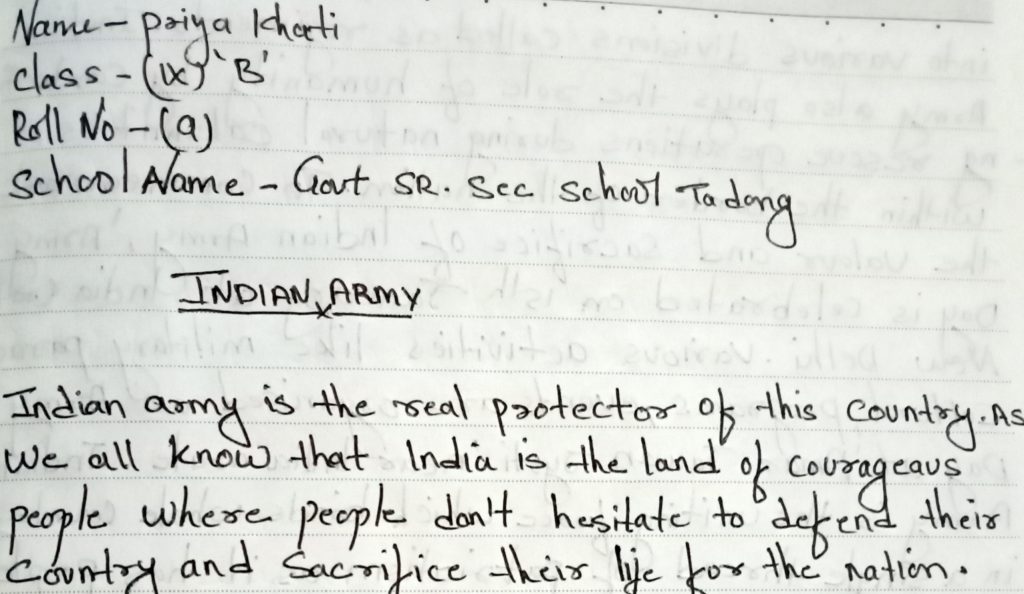 Name - Priya Khati
class - (IX) 'B'
Roll No - (9)
School Name - Govt SR. Sec School Tadong
INDIAN ARMY
Indian army is the real protector of this country. As
we all know that India is the land of courageous
people where people don't hesitate to defend their
Country and Sacrifice their life for the nation.